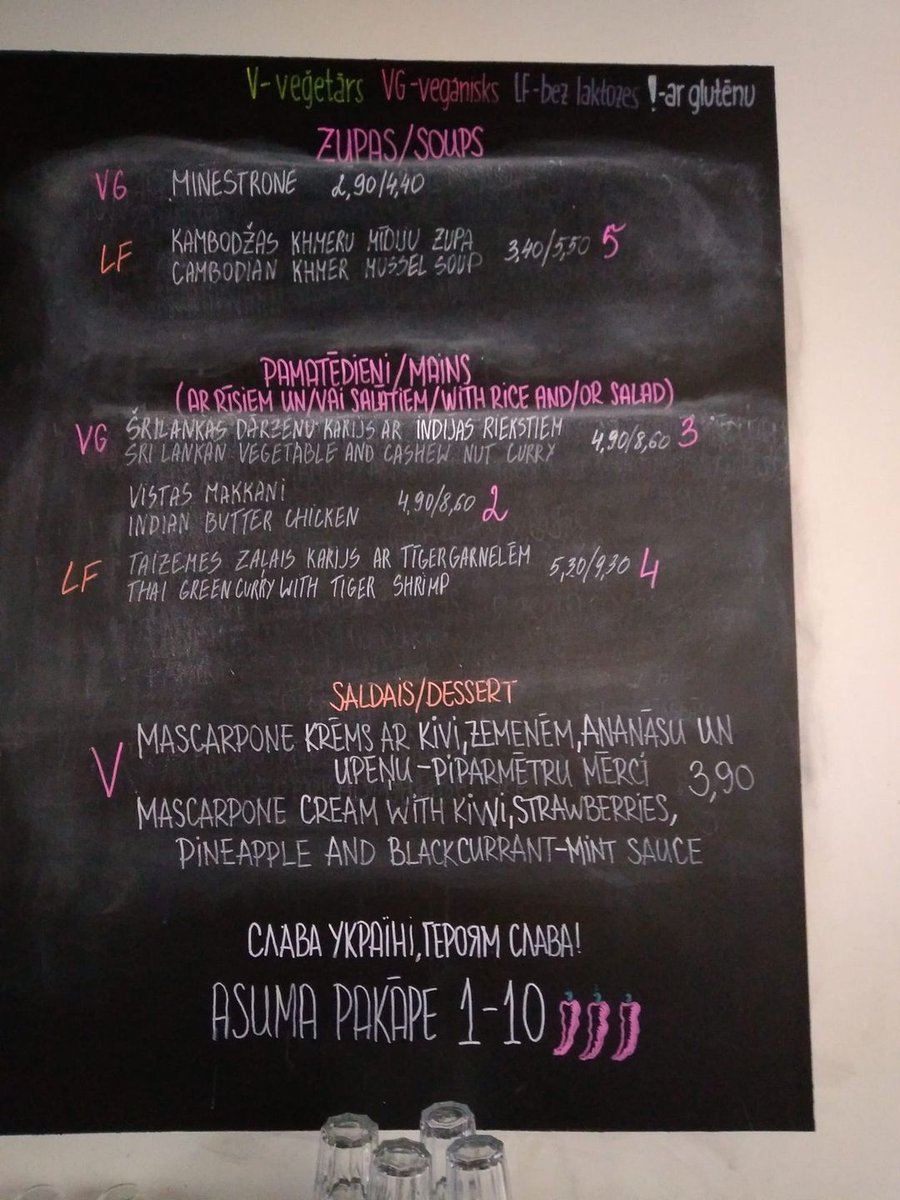 V-veģetārs VG-vegānisks LF-bez laktozes !-ar glutēnu
ZUPAS/SOUPS
VG MINESTRONE 2,90/4,40
KAMBODŽAS KHMERU MĪDIJU ZUPA 3,40/5,50 5
LF CAMBODIAN KHMER MUSSEL SOUP
PAMATĒDIENI/MAINS
(AR RĪSIEM UN/VAI SALĀTIEM/WITH RICE AND/OR SALAD)
VG ŠRILANKAS DĀRZEŅU KARIJS AR INDIJAS RIEKSTIEM 4,90/8,60 3
SRI LANKAN VEGETABLE AND CASHEW NUT CURRY
VISTAS MAKKANI 4,90/8,60 2
INDIAN BUTTER CHICKEN
LF TAIZEMES ZAĻAIS KARIJS AR TĪGERGARNELĒM 5,30/9,30 4
THAI GREEN CURRY WITH TIGER SHRIMP
SALDAIS/DESSERT
V MASCARPONE KRĒMS AR KIVI, ZEMENĒM, ANANĀSU UN
UPEŅU-PIPARMĒTRU MĒRCI 3,90
MASCARPONE CREAM WITH KIWI, STRAWBERRIES,
PINEAPPLE AND BLACKCURRANT-MINT SAUCE
СЛАВА УКРАЇНІ, ГЕРОЯМ СЛАВА!
ASUMA PAKĀPE 1-10